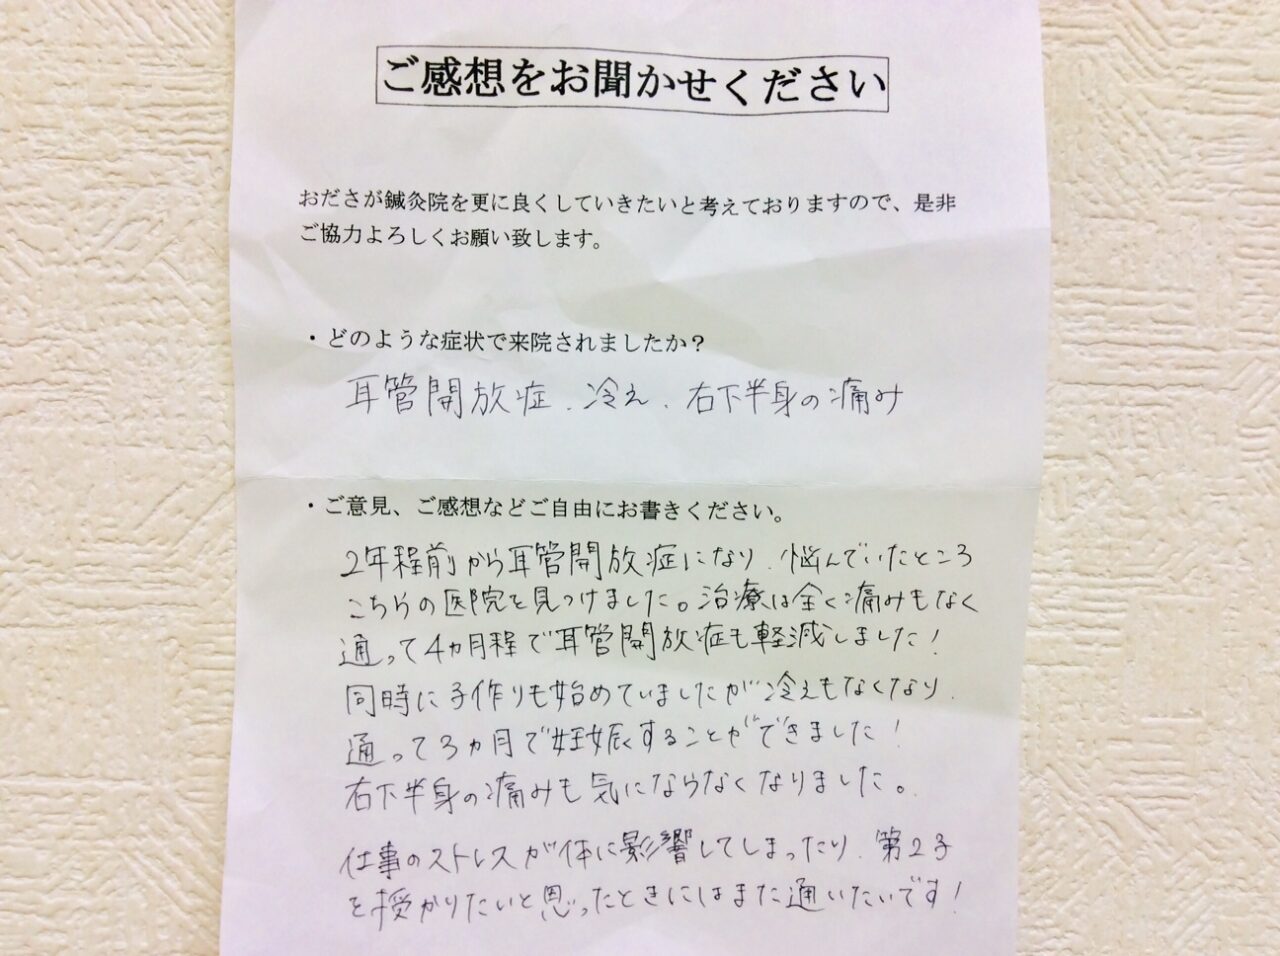 ご感想をお聞かせください
おださが鍼灸院を更に良くしていきたいと考えておりますので、是非
ご協力よろしくお願い致します。
・どのような症状で来院されましたか？
耳管開放症、冷え、右下半身の痛み
・ご意見、ご感想などご自由にお書きください。
2年程前から耳管開放症になり、悩んでいたところ
こちらの医院を見つけました。治療は全く痛みもなく
通って4ヵ月程で耳管開放症も軽減しました！
同時に子作りも始めていましたが冷えもなくなり、
通って3ヵ月で妊娠することができました！
右下半身の痛みも気にならなくなりました。
仕事のストレスが体に影響してしまったり、第2子
を授かりたいと思ったときにはまた通いたいです！